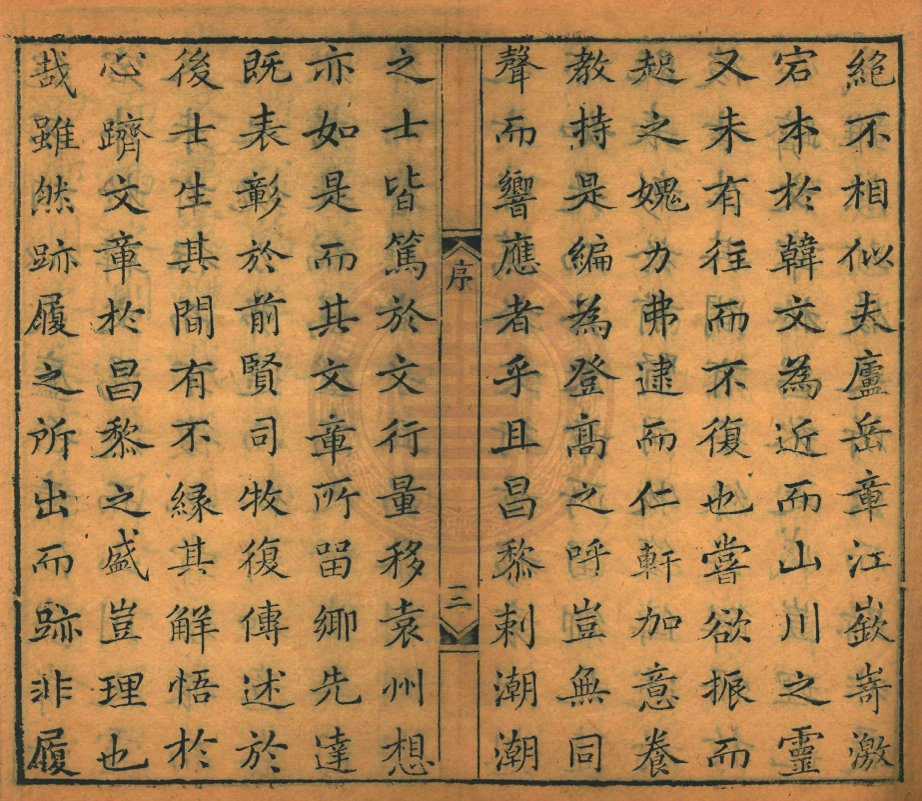 絶不相似夫廬岳章江嶔嵜激
宕本於韓文為近而山川之靈
又未有往而不復也嘗欲振而
起之媿力弗逮而仁軒加意養
教持是編為登高之呼豈無同
聲而響應者乎且昌黎刺潮潮
序
三
之士皆篤於文行量移袁州想
亦如是而其文章所留鄉先達
既表彰於前賢司牧復傳述於
後士生其間有不緣其解悟於
心躋文章於昌黎之盛豈理也
哉雖然跡履之所出而跡非履